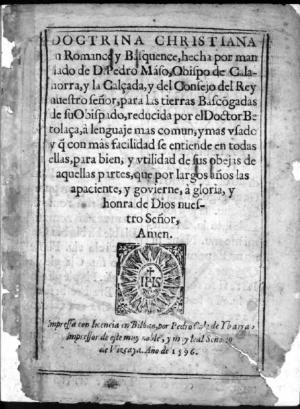 DOCTRINA CHRISTIANA
n Romance y Basquence, hecha por man
dado de D. Pedro Māso, Obispo de Cala-
horra, y la Calçada, y del Consejo del Rey
nuestro señor, para las tierras Bascōgadas
de su Obispado, reducida por el Doctor Be
tolaça, à lenguaje mas comun, y mas vsado
y q̄ con mas facilidad se entiende en todas
ellas, para bien, y vtilidad de sus obejas de
aquellas partes, que por largos años las
apaciente, y govierne, à gloria, y
honra de Dios nues-
tro Señor,
Amen.
IHS
Impressa con licencia en Bilbao, por Pedro Cole de Ybarra
impressor de este muy noble, y muy leal Señorio
de Vizcaya. Año de 1596.